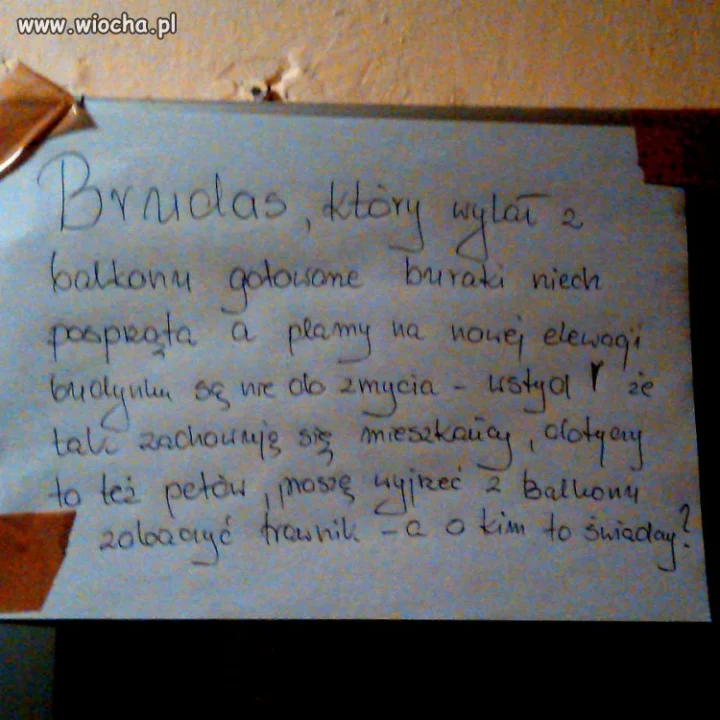 www.wiocha.pl
Brudas, który wylał z
balkonu gotowane buraki niech
posprząta a plamy na nowej elewagi
budynku są nie do zmycia - wstyd że
tak zachowują się mieszkańcy, dotyczy
to też petów, proszę wyjrzeć z Balkonu
zobaczyć trawnik - a o kim to świadczy?